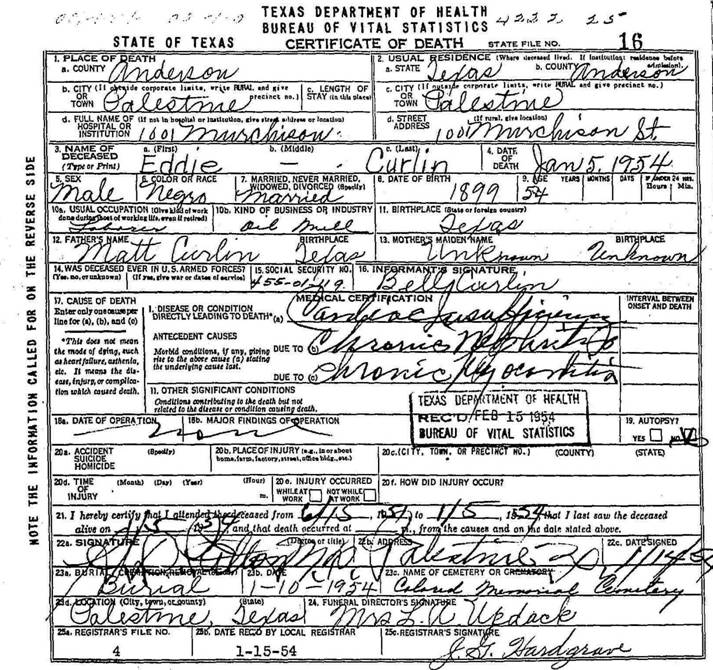 TEXAS DEPARTMENT OF HEALTH
BUREAU OF VITAL STATISTICS 4222 25
STATE OF TEXAS CERTIFICATE OF DEATH STATE FILE NO. 16
1. PLACE OF DEATH
a. COUNTY Anderson
2. USUAL RESIDENCE (Where deceased lived. If institution: residence before admission).
a. STATE Texas b. COUNTY Anderson
b. CITY (If outside corporate limits, write RURAL and give precinct no.) OR TOWN Palestine
c. LENGTH OF STAY (in this place)
c. CITY (If outside corporate limits, write RURAL and give precinct no.) OR TOWN Palestine
d. FULL NAME OF (If not in hospital or institution, give street address or location) HOSPITAL OR INSTITUTION 1001 Murchison
d. STREET ADDRESS (If rural, give location) 1001 Murchison St.
3. NAME OF DECEASED (Type or Print) a. (First) Eddie b. (Middle) — c. (Last) Curlin
4. DATE OF DEATH Jan 5, 1954
5. SEX Male
6. COLOR OR RACE Negro
7. MARRIED, NEVER MARRIED, WIDOWED, DIVORCED (Specify) Married
8. DATE OF BIRTH 1899
9. AGE YEARS MONTHS DAYS IF UNDER 24 HRS. Hours Min. 54
10a. USUAL OCCUPATION (Give kind of work done during most of working life, even if retired) Laborer
10b. KIND OF BUSINESS OR INDUSTRY Oil Mill
11. BIRTHPLACE (State or foreign country) Texas
12. FATHER'S NAME Matt Curlin BIRTHPLACE Texas
13. MOTHER'S MAIDEN NAME Unknown BIRTHPLACE Unknown
14. WAS DECEASED EVER IN U.S. ARMED FORCES? (Yes, no or unknown) (If yes, give war or dates of service)
15. SOCIAL SECURITY NO.
16. INFORMANT'S SIGNATURE Curlin
17. CAUSE OF DEATH
Enter only one cause per line for (a), (b), and (c)
*This does not mean the mode of dying, such as heart failure, asthenia, etc. It means the disease, injury, or complication which caused death.
MEDICAL CERTIFICATION
INTERVAL BETWEEN ONSET AND DEATH
I. DISEASE OR CONDITION DIRECTLY LEADING TO DEATH* (a) Cardiac Insufficiency
ANTECEDENT CAUSES
Morbid conditions, if any, giving rise to the above cause (a) stating the underlying cause last.
DUE TO (b) Chronic Nephritis
DUE TO (c) Chronic Myocarditis
II. OTHER SIGNIFICANT CONDITIONS
Conditions contributing to the death but not related to the disease or condition causing death.
TEXAS DEPARTMENT OF HEALTH
REC'D FEB 15 1954
BUREAU OF VITAL STATISTICS
18a. DATE OF OPERATION 18b. MAJOR FINDINGS OF OPERATION
None
19. AUTOPSY? YES NO
20a. ACCIDENT SUICIDE HOMICIDE (Specify)
20b. PLACE OF INJURY (e.g., in or about home, farm, factory, street, office bldg., etc.)
20c. (CITY, TOWN, OR PRECINCT NO.) (COUNTY) (STATE)
20d. TIME OF INJURY (Month) (Day) (Year) (Hour) m.
20e. INJURY OCCURRED WHILE AT WORK NOT WHILE AT WORK
20f. HOW DID INJURY OCCUR?
21. I hereby certify that I attended the deceased from to 1/5 1954 that I last saw the deceased
alive on 1954, and that death occurred at m., from the causes and on the date stated above.
22a. SIGNATURE (Degree or title)
22b. ADDRESS Palestine
22c. DATE SIGNED
23a. BURIAL, CREMATION, REMOVAL (Specify) Burial
23b. DATE 1-10-1954
23c. NAME OF CEMETERY OR CREMATORY Colored Memorial Cemetery
23d. LOCATION (City, town, or county) (State) Palestine, Texas
24. FUNERAL DIRECTOR'S SIGNATURE Mrs L. A. Updack
25a. REGISTRAR'S FILE NO. 4
25b. DATE REC'D BY LOCAL REGISTRAR 1-15-54
25c. REGISTRAR'S SIGNATURE J. G. Hardgrave
NOTE THE INFORMATION CALLED FOR ON THE REVERSE SIDE